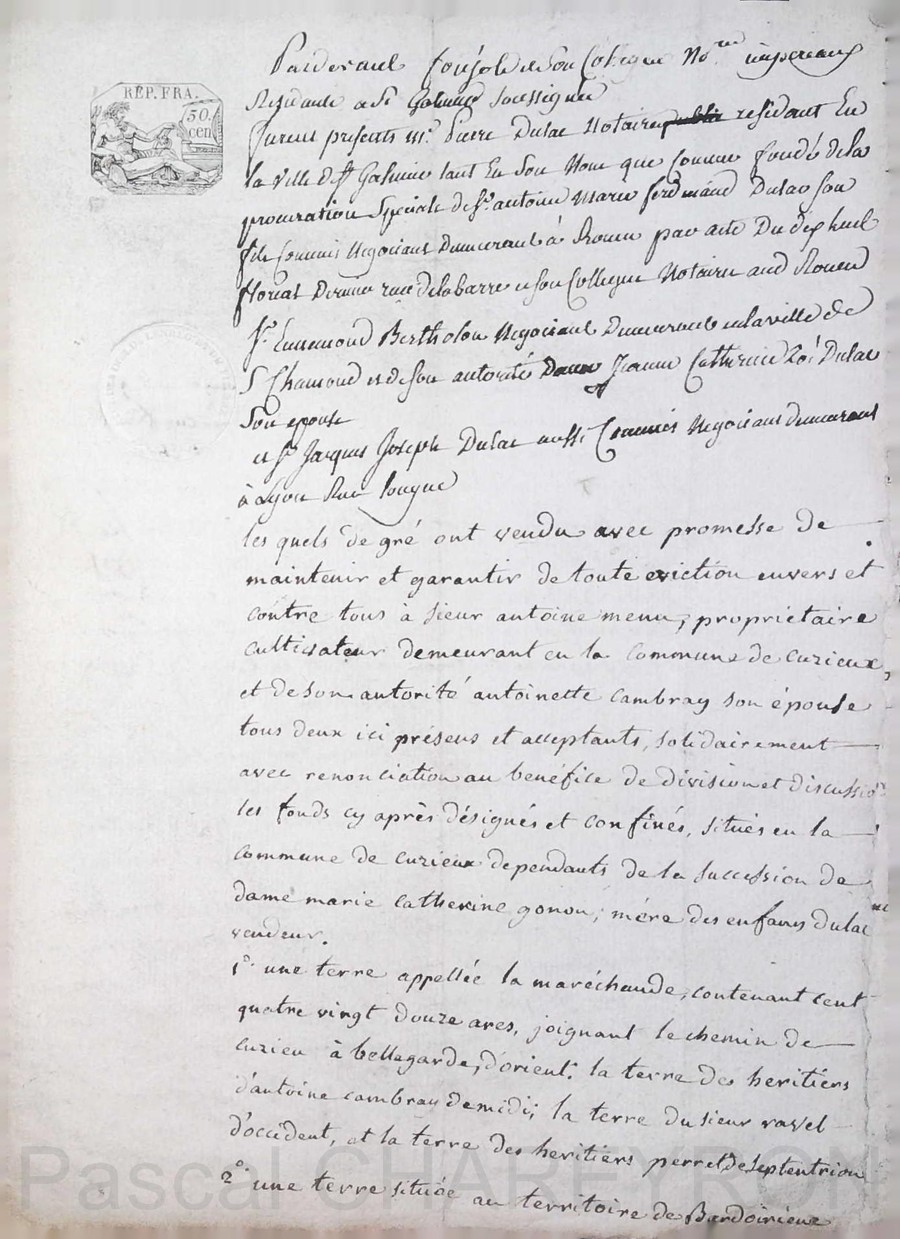 RÉP. FRA.
50.
cen
Pardevant et Son Collegue No.res imperiaux
Residants a St Galmier soussignés
furent présents Mr. Pierre Dulac Notaire public residant En
la ville de St Galmier tant En Son Nom que comme fondé de la
procuration Spéciale de Sr. antoine Marie ferdinand Dulac Son
fils Commis Negociant Demeurant à Rouen par acte Du dix huit
floreal Dernier reçu delabarre et son Collegue Notaires aud Rouen
Sr. Bertholon Negociant Demeurant en la ville de
St Chamond et de Son autorité Dame Jeanne Catherine Zoé Dulac
Son epouse
et Sr. Jacques Joseph Dulac aussi Commis Negociant demeurant
à Lyon Rue
les quels de gré ont vendu avec promesse de
maintenir et garantir de toute eviction envers et
contre tous à sieur antoine menu, propriétaire
cultivateur demeurant en la commune de curieux,
et de son autorité antoinette cambray son épouse
tous deux ici présens et acceptants, solidairement
avec renonciation au benéfice de division et discussion
les fonds cy après désignés et confinés, situés en la
commune de curieux dependants de la succession de
dame marie catherine gonon, mére des enfans dulac
vendeur.
1°. une terre appellée la maréchaude, contenant cent
quatre vingt douze ares, joignant le chemin de
curieu à bellegarde, d'orient. la terre des heritiers
d'antoine cambray de midi; la terre du sieur ravel
d'occident, et la terre des heritiers perret de septentrion
2°. une terre située au territoire de
Pascal CHAREYRON